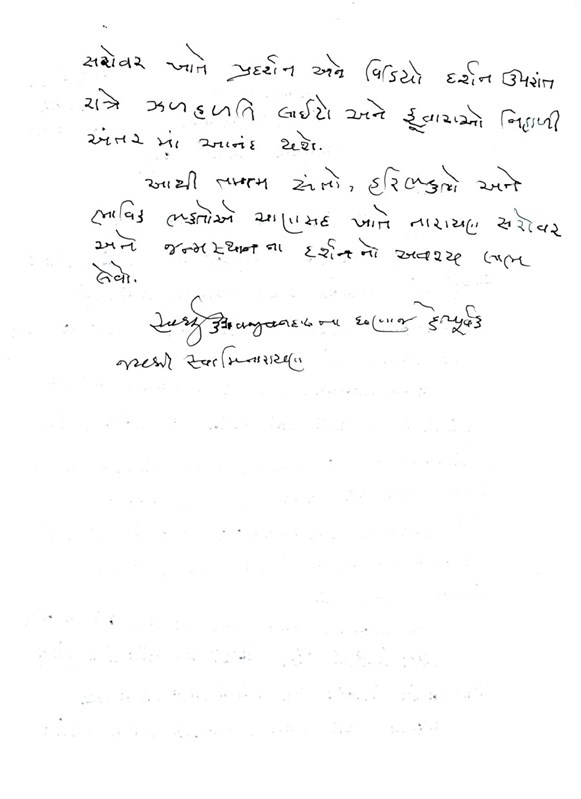 સરોવર ખાતે પ્રદર્શન અને વિડિયો દર્શન ઉપરાંત
રાત્રે ઝળહળતિ લાઈટો અને ફૂવારાઓ નિહાળી
અંતર માં આનંદ થશે.
આથી તમામ સંતો, હરિભક્તો અને
ભાવિક ભક્તોએ ચાણસદ ખાતે નારાયણ સરોવર
અને જન્મસ્થાન ના દર્શનનો અવશ્ય લાભ
લેવો.
ના ઘણાજ હેતપૂર્વક
જયશ્રી સ્વામિનારાયણ